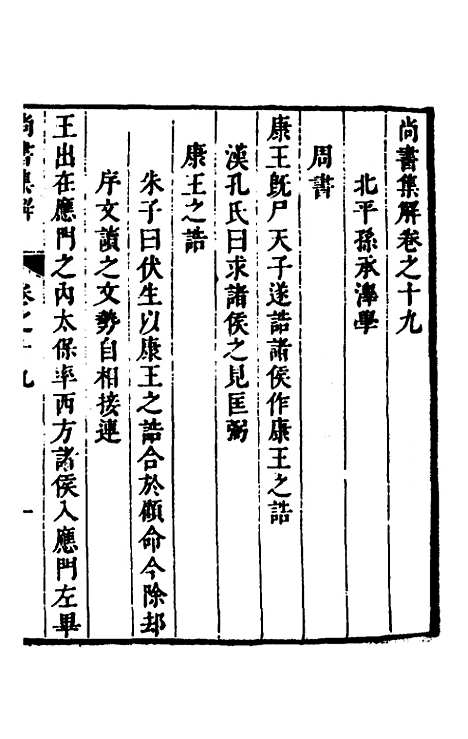 尚書集解卷之十九
北平孫承澤學
周書
康王旣尸天子遂誥諸侯作康王之誥
漢孔氏曰求諸侯之見匡弼
康王之誥
朱子曰伏生以康王之誥合於顧命今除却
序文讀之文勢自相接連
王出在應門之內太保率西方諸侯入應門左畢
尚書集解 卷之十九 一